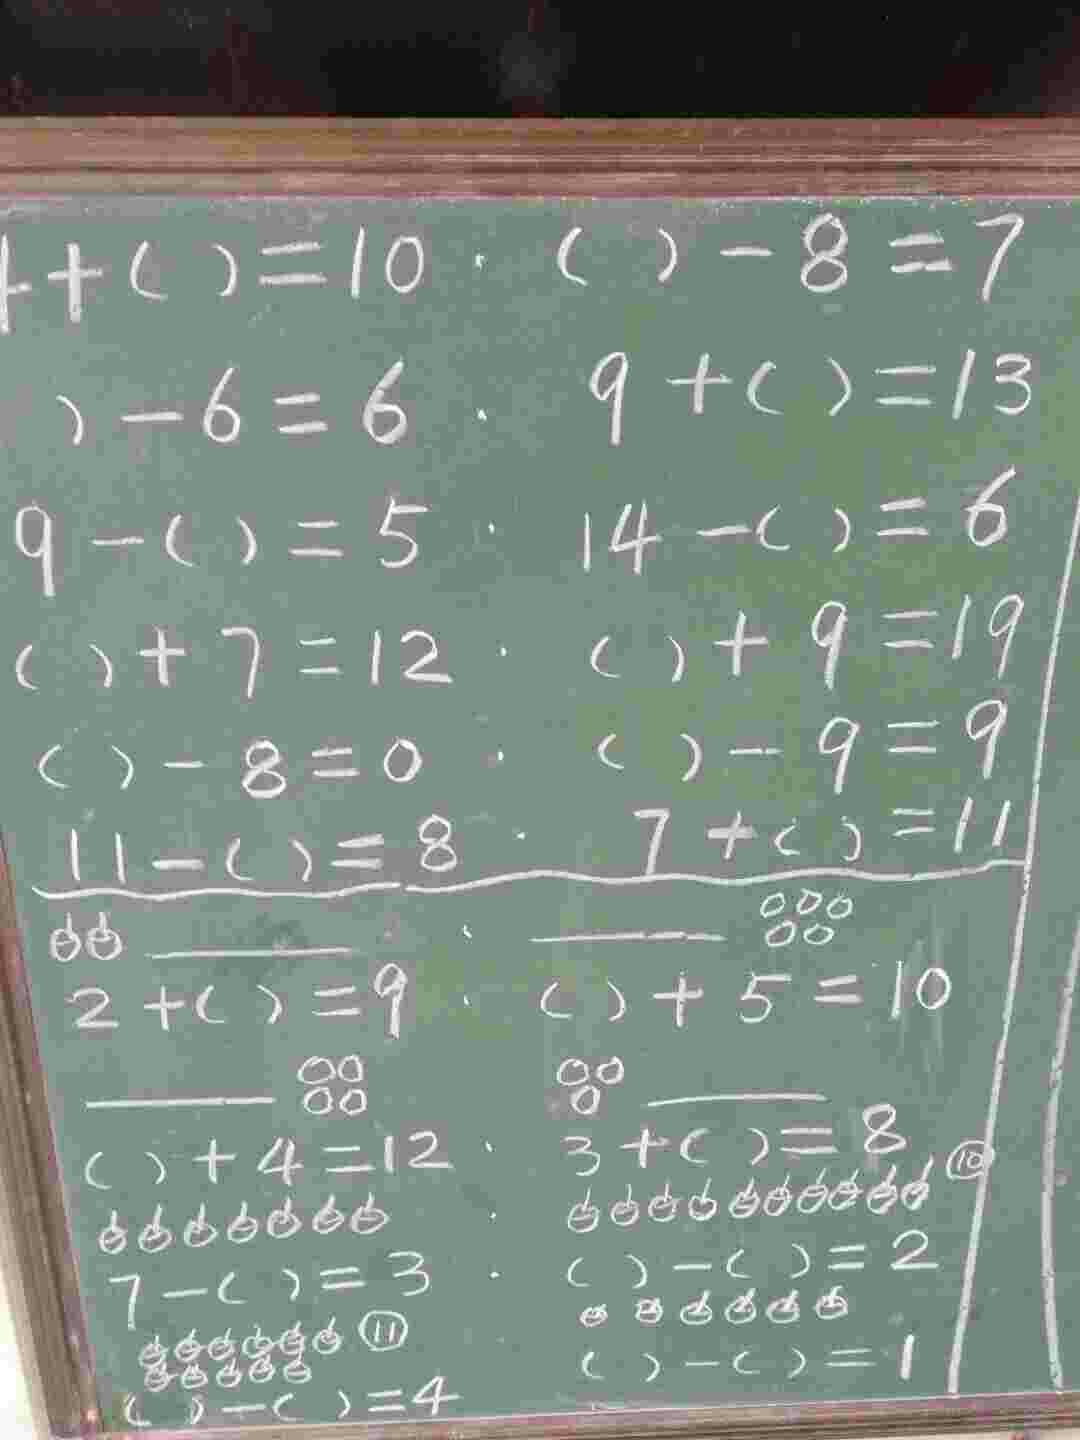 + ( ) = 10 · ( ) - 8 = 7
) - 6 = 6 · 9 + ( ) = 13
9 - ( ) = 5 · 14 - ( ) = 6
( ) + 7 = 12 · ( ) + 9 = 19
( ) - 8 = 0 · ( ) - 9 = 9
11 - ( ) = 8 · 7 + ( ) = 11
2 + ( ) = 9 · ( ) + 5 = 10
( ) + 4 = 12 · 3 + ( ) = 8
10
7 - ( ) = 3 · ( ) - ( ) = 2
11
( ) - ( ) = 4 ( ) - ( ) = 1